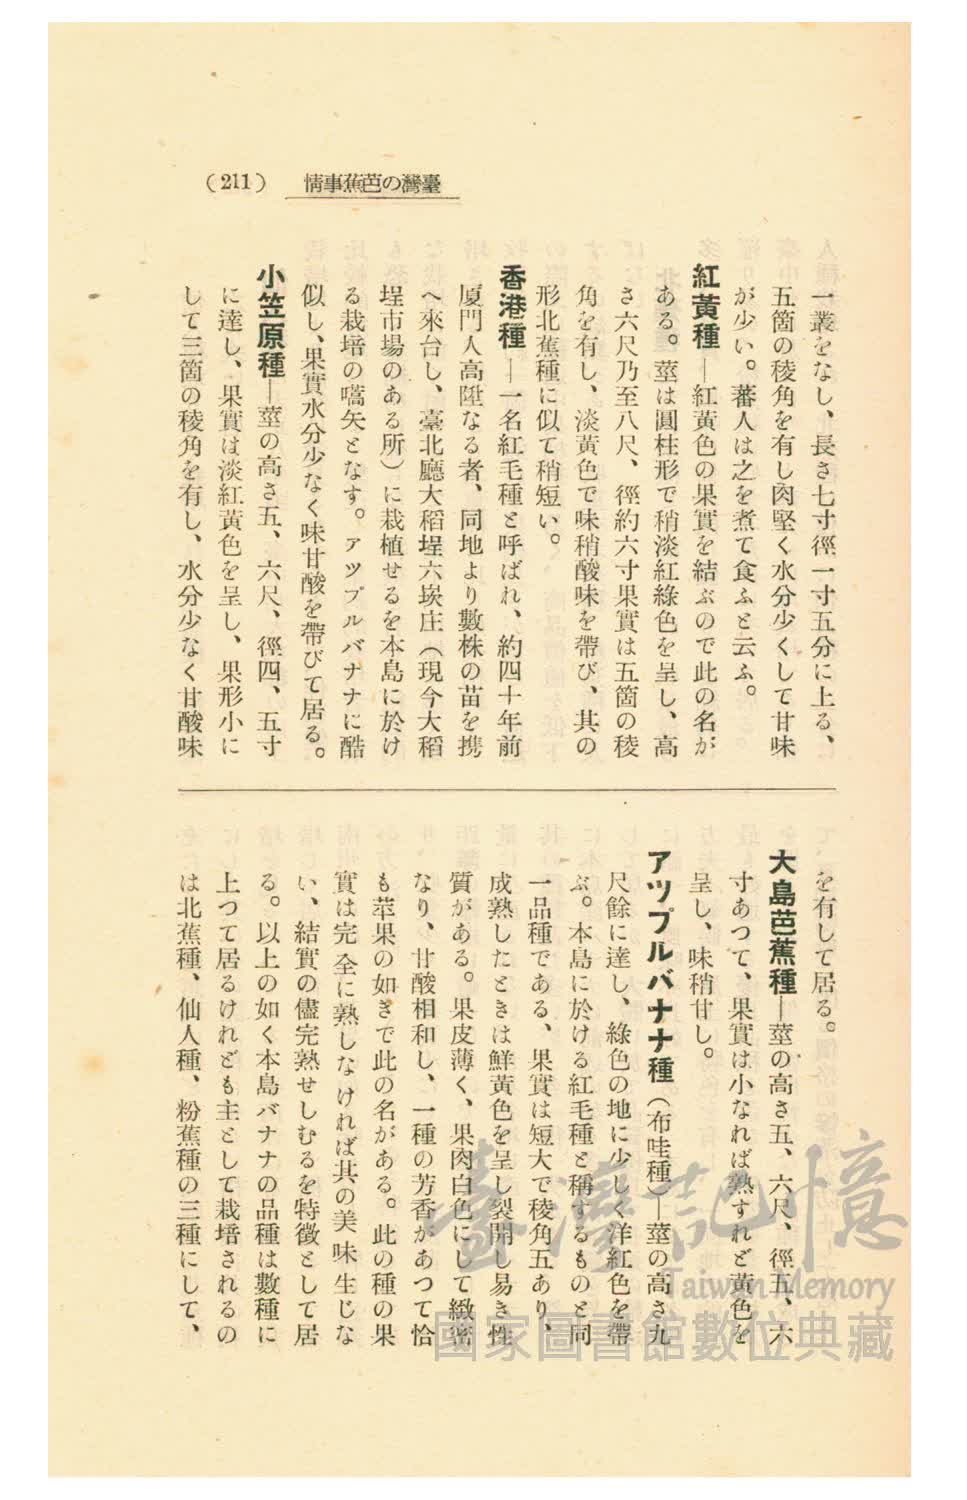 (211) 情事蕉芭の灣臺
一叢をなし、長さ七寸徑一寸五分に上る、
五箇の稜角を有し肉堅く水分少くして甘味
が少い。蕃人は之を煮て食ふと云ふ。
紅黃種—紅黃色の果實を結ぶので此の名が
ある。莖は圓柱形で稍淡紅綠色を呈し、高
さ六尺乃至八尺、徑約六寸果實は五箇の稜
角を有し、淡黃色で味稍酸味を帶び、其の
形北蕉種に似て稍短い。
香港種—一名紅毛種と呼ばれ、約四十年前
厦門人高陞なる者、同地より數株の苗を携
へ來台し、臺北廳大稻埕六崁庄(現今大稻
埕市場のある所)に栽植せるを本島に於け
る栽培の嚆矢となす。アツプルバナナに酷
似し、果實水分少なく味甘酸を帶びて居る。
小笠原種—莖の高さ五、六尺、徑四、五寸
に達し、果實は淡紅黃色を呈し、果形小に
して三箇の稜角を有し、水分少なく甘酸味
を有して居る。
大島芭蕉種—莖の高さ五、六尺、徑五、六
寸あつて、果實は小なれば熟すれど黃色を
呈し、味稍甘し。
アツプルバナナ種(布哇種)—莖の高さ九
尺餘に達し、綠色の地に少しく洋紅色を帶
ぶ。本島に於ける紅毛種と稱するものと同
一品種である、果實は短大で稜角五あり、
成熟したときは鮮黃色を呈し裂開し易き性
質がある。果皮薄く、果肉白色にして緻密
なり、甘酸相和し、一種の芳香があつて恰
も苹果の如きで此の名がある。此の種の果
實は完全に熟しなければ其の美味生じな
い、結實の儘完熟せしむるを特徵として居
る。以上の如く本島バナナの品種は數種に
上つて居るけれども主として栽培されるの
は北蕉種、仙人種、粉蕉種の三種にして、
臺灣記憶
Taiwan Memory
國家圖書館數位典藏